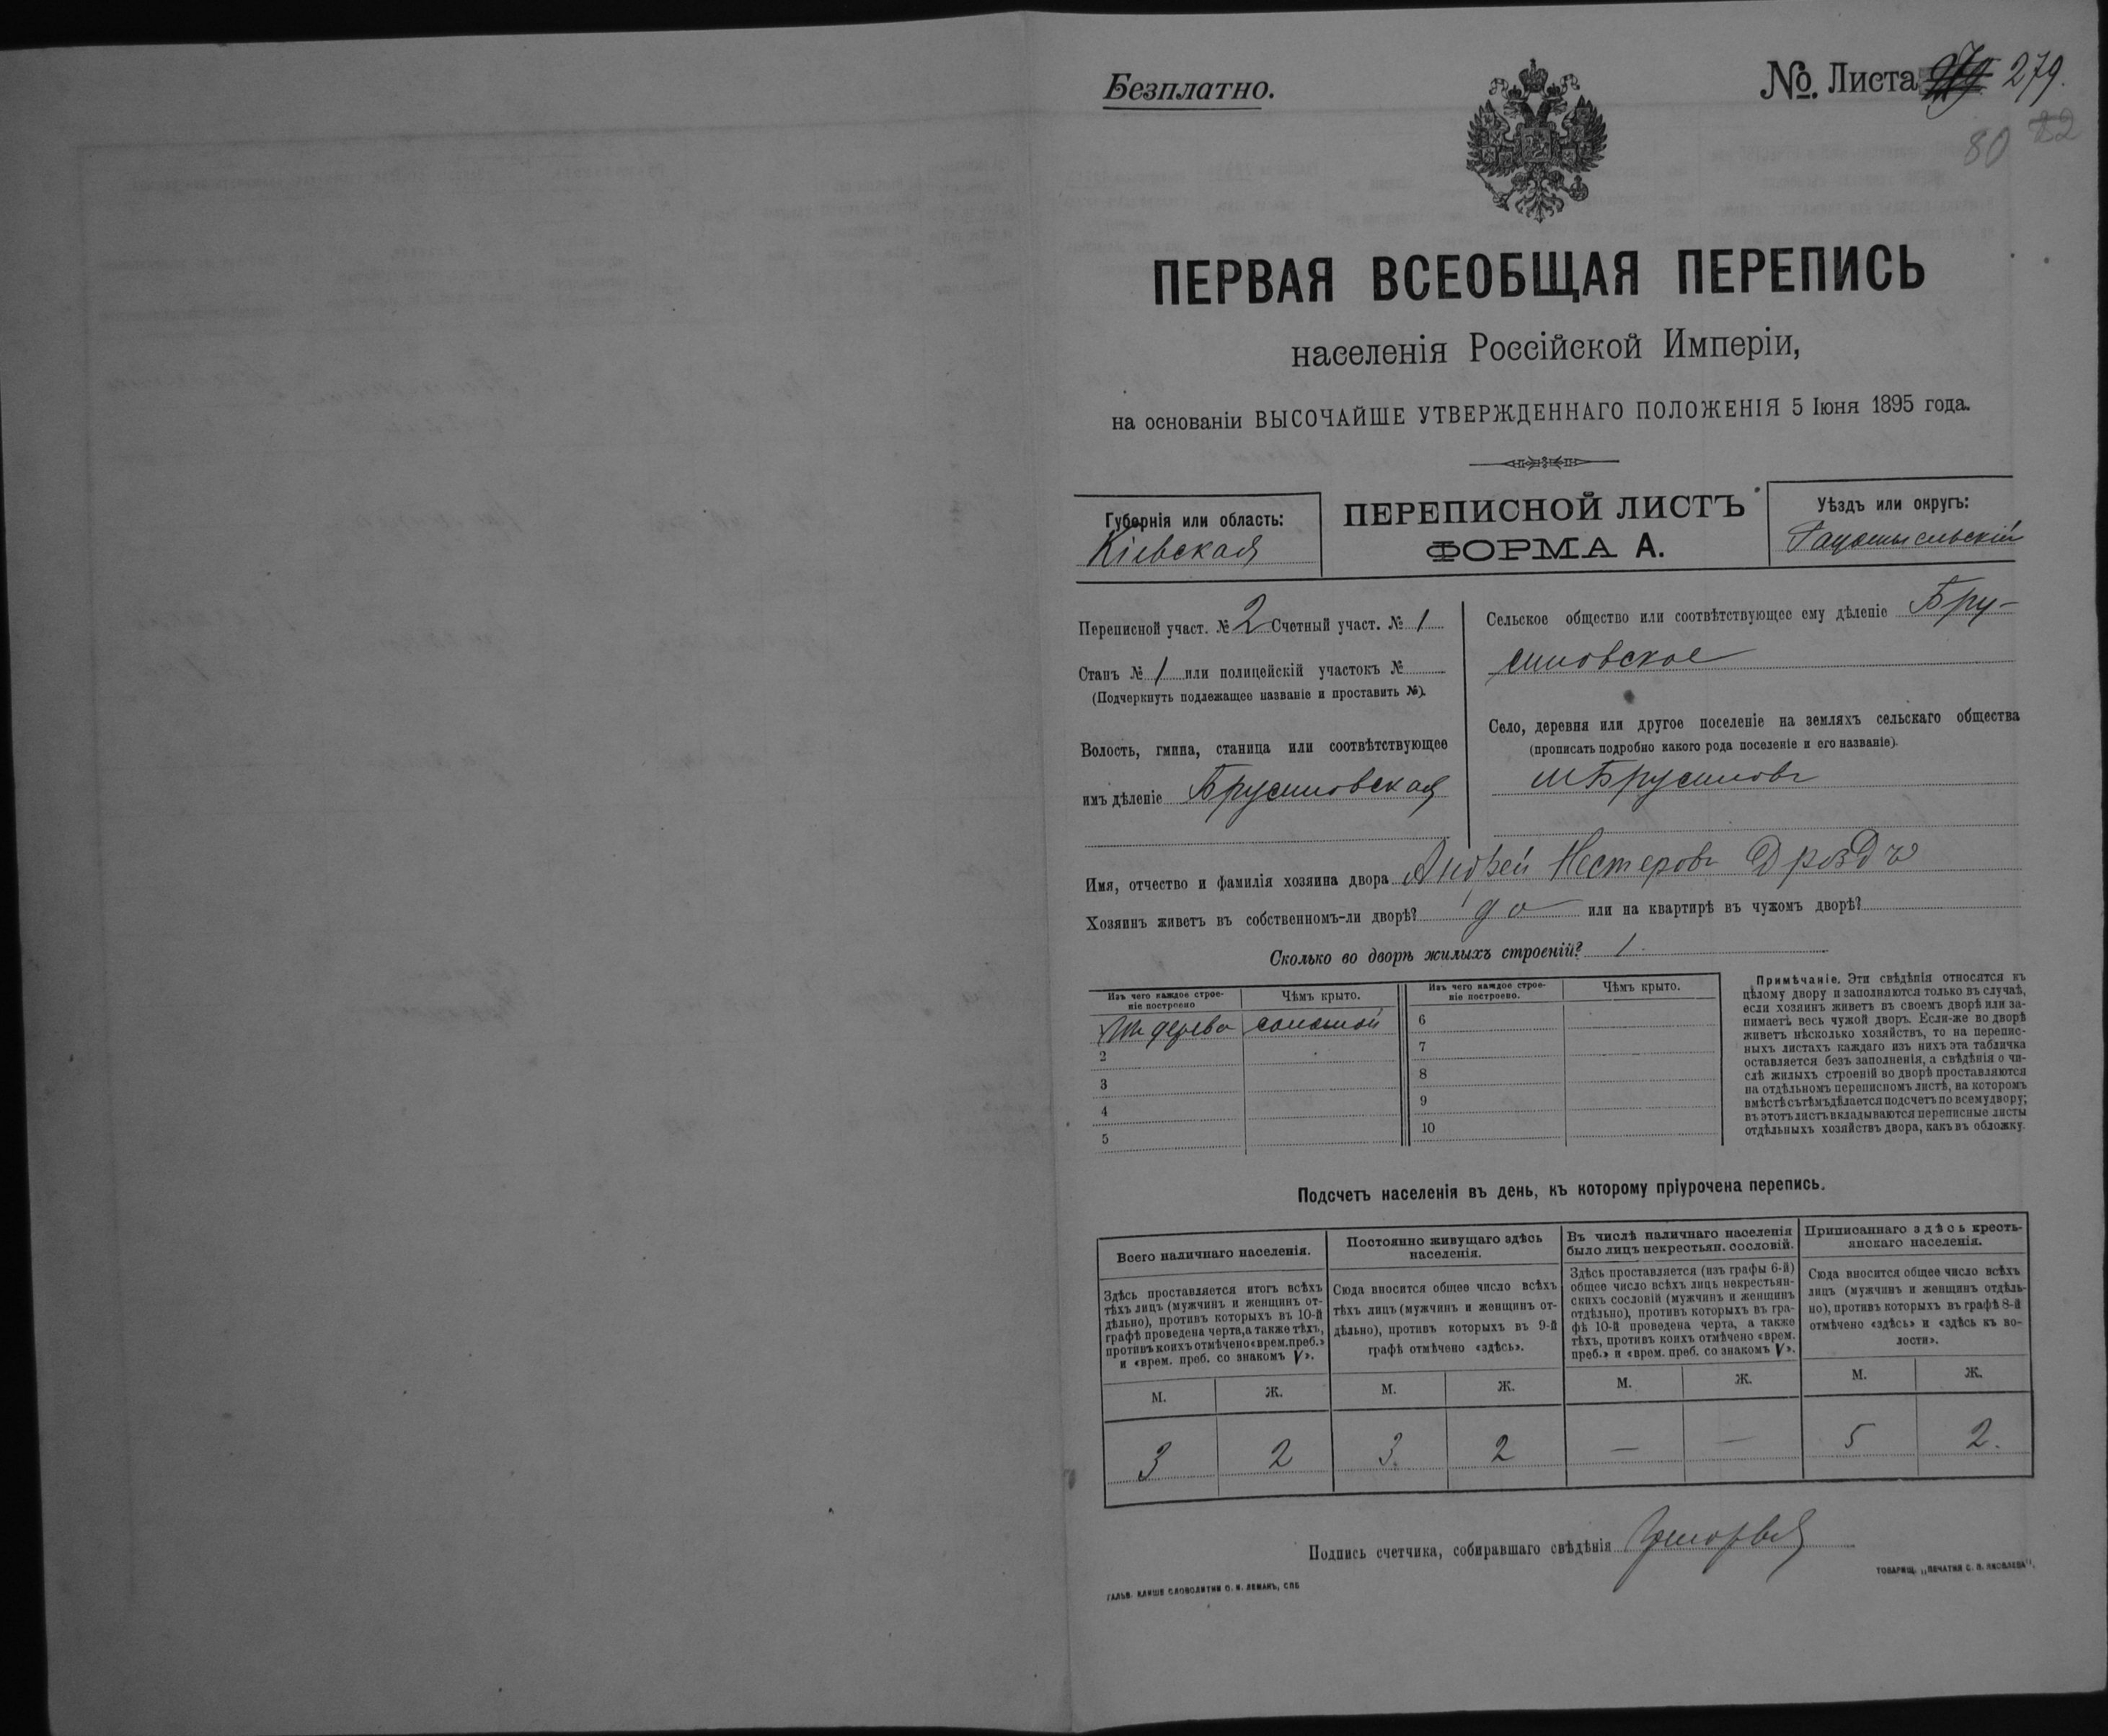 Безплатно.
№. Листа 279.
80 22
ПЕРВАЯ ВСЕОБЩАЯ ПЕРЕПИСЬ
населенія Россійской Имперіи,
на основаніи ВЫСОЧАЙШЕ УТВЕРЖДЕННАГО ПОЛОЖЕНІЯ 5 Іюня 1895 года.
Губернія или область:
Кіевская
ПЕРЕПИСНОЙ ЛИСТЪ
ФОРМА А.
Уѣздъ или округъ:
Радомысльскій
Переписной участ. № 2 Счетный участ. № 1
Станъ № 1 или полицейскій участокъ №
(Подчеркнуть подлежащее названіе и проставить №).
Волость, гмина, станица или соотвѣтствующее
имъ дѣленіе Брусиловская
Сельское общество или соотвѣтствующее ему дѣленіе Бру-
силовское
Село, деревня или другое поселеніе на земляхъ сельскаго общества
(прописать подробно какого рода поселеніе и его названіе).
м Брусиловъ
Имя, отчество и фамилія хозяина двора Андрей Нестеровъ Дроздъ
Хозяинъ живетъ въ собственномъ-ли дворѣ? да или на квартирѣ въ чужомъ дворѣ?
Сколько во дворѣ жилыхъ строеній? 1.
Изъ чего каждое строе-
ніе построено
Чѣмъ крыто.
Изъ чего каждое строе-
ніе построено.
Чѣмъ крыто.
Изъ дерева соломой
2
3
4
5
6
7
8
9
10
Примѣчаніе. Эти свѣдѣнія относятся къ
цѣлому двору и заполняются только въ случаѣ,
если хозяинъ живетъ въ своемъ дворѣ или за-
нимаетъ весь чужой дворъ. Если-же во дворѣ
живетъ нѣсколько хозяйствъ, то на перепис-
ныхъ листахъ каждаго изъ нихъ эта табличка
оставляется безъ заполненія, а свѣдѣнія о чи-
слѣ жилыхъ строеній во дворѣ проставляются
на отдѣльномъ переписномъ листѣ, на которомъ
вмѣстѣ съ тѣмъ дѣлается подсчетъ по всему двору;
въ этотъ листъ вкладываются переписные листы
отдѣльныхъ хозяйствъ двора, какъ въ обложку.
Подсчетъ населенія въ день, къ которому пріурочена перепись.
Всего наличнаго населенія.
Здѣсь проставляется итогъ всѣхъ
тѣхъ лицъ (мужчинъ и женщинъ от-
дѣльно), противъ которыхъ въ 10-й
графѣ проведена черта, а также тѣхъ,
противъ коихъ отмѣчено «врем. преб.»
и «врем. преб. со знакомъ V».
Постоянно живущаго здѣсь
населенія.
Сюда вносится общее число всѣхъ
тѣхъ лицъ (мужчинъ и женщинъ от-
дѣльно), противъ которыхъ въ 9-й
графѣ отмѣчено «здѣсь».
Въ числѣ наличнаго населенія
было лицъ некрестьян. сословій.
Здѣсь проставляется (изъ графы 6-й)
общее число всѣхъ лицъ некрестьян-
скихъ сословій (мужчинъ и женщинъ
отдѣльно), противъ которыхъ въ гра-
фѣ 10-й проведена черта, а также
тѣхъ, противъ коихъ отмѣчено «врем.
преб.» и «врем. преб. со знакомъ V».
Приписаннаго здѣсь кресть-
янскаго населенія.
Сюда вносится общее число всѣхъ
лицъ (мужчинъ и женщинъ отдѣль-
но), противъ которыхъ въ графѣ 8-й
отмѣчено «здѣсь» и «здѣсь къ во-
лости».
М. Ж. М. Ж. М. Ж. М. Ж.
3 2 3. 2 — — 5 2.
Подпись счетчика, собиравшаго свѣдѣнія
ГАЛЬВ. КЛИШЕ СЛОВОЛИТНИ О. И. ЛЕМАНЪ, СПБ
ТОВАРИЩ. „ПЕЧАТНЯ С. П. ЯКОВЛЕВА“.